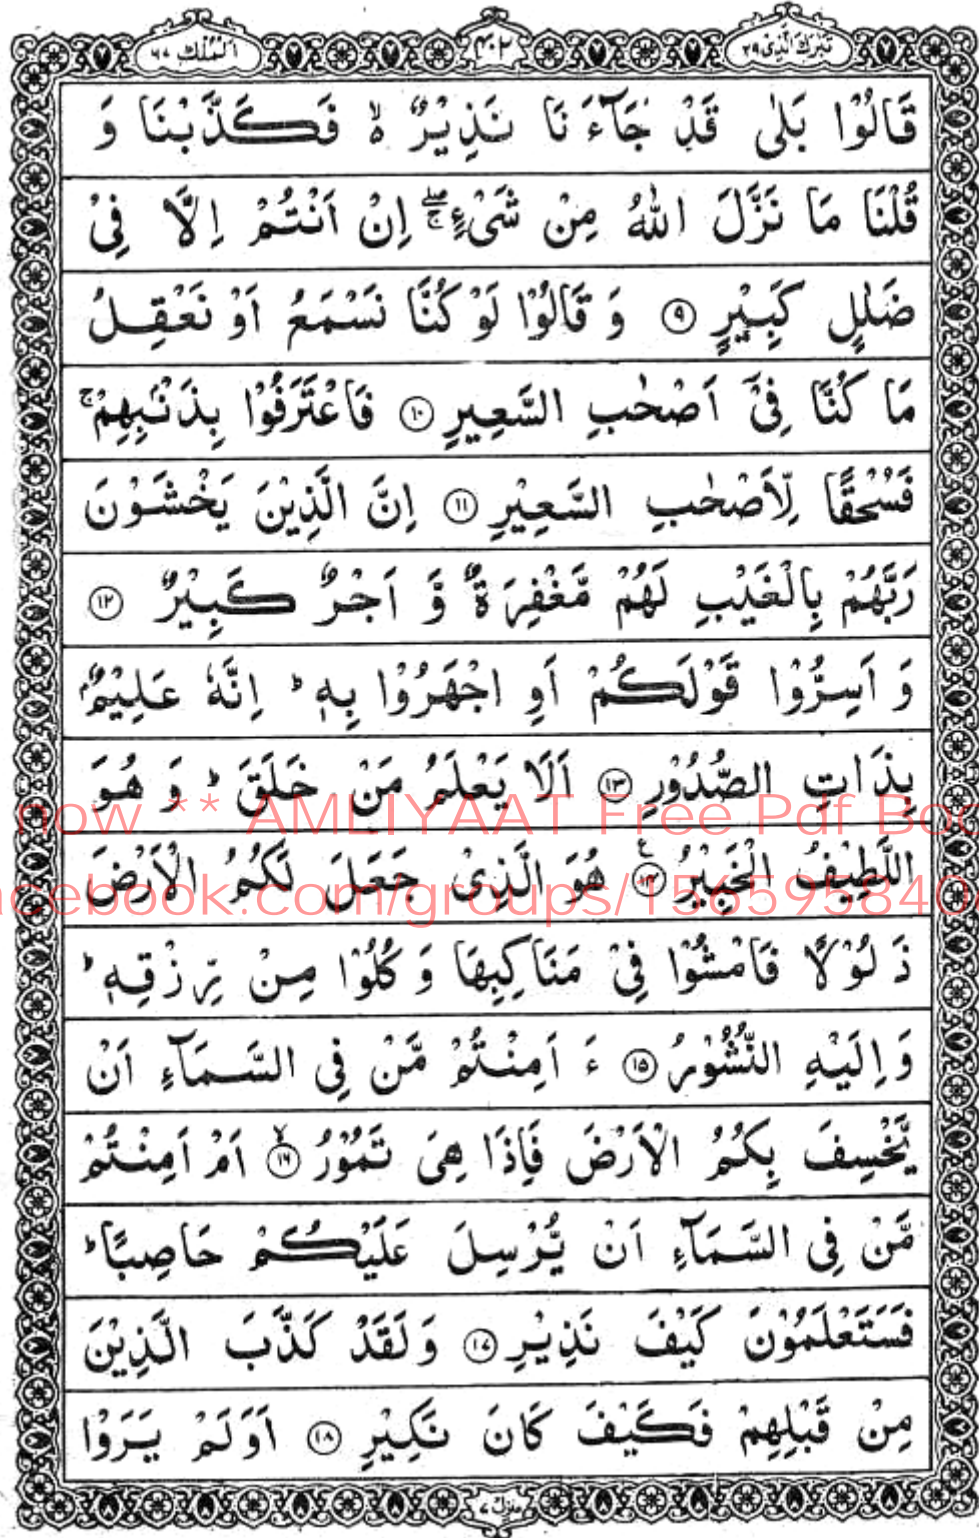 تبٰرك الّذى ٢٩
٤٠٢
الملك ٦٧
قَالُوْا بَلٰى قَدْ جَآءَنَا نَذِيْرٌ ۙ فَكَذَّبْنَا وَ
قُلْنَا مَا نَزَّلَ اللّٰهُ مِنْ شَىْءٍ ۖۚ اِنْ اَنْتُمْ اِلَّا فِىْ
ضَلٰلٍ كَبِيْرٍ ۹ وَ قَالُوْا لَوْ كُنَّا نَسْمَعُ اَوْ نَعْقِلُ
مَا كُنَّا فِىْۤ اَصْحٰبِ السَّعِيْرِ ۱۰ فَاعْتَرَفُوْا بِذَنْۢبِهِمْ ۚ
فَسُحْقًا لِّاَصْحٰبِ السَّعِيْرِ ۱۱ اِنَّ الَّذِيْنَ يَخْشَوْنَ
رَبَّهُمْ بِالْغَيْبِ لَهُمْ مَّغْفِرَةٌ وَّ اَجْرٌ كَبِيْرٌ ۱۲
وَ اَسِرُّوْا قَوْلَكُمْ اَوِ اجْهَرُوْا بِهٖ ؕ اِنَّهٗ عَلِيْمٌۢ
بِذَاتِ الصُّدُوْرِ ۱۳ اَلَا يَعْلَمُ مَنْ خَلَقَ ؕ وَ هُوَ
now ** AMLIYAAT Free Pdf Boo
اللَّطِيْفُ الْخَبِيْرُ ۱۴ هُوَ الَّذِىْ جَعَلَ لَكُمُ الْاَرْضَ
acebook.com/groups/156595840
ذَلُوْلًا فَامْشُوْا فِىْ مَنَاكِبِهَا وَ كُلُوْا مِنْ رِّزْقِهٖ ؕ
وَ اِلَيْهِ النُّشُوْرُ ۱۵ ءَ اَمِنْتُمْ مَّنْ فِى السَّمَآءِ اَنْ
يَّخْسِفَ بِكُمُ الْاَرْضَ فَاِذَا هِىَ تَمُوْرُ ۱۶ اَمْ اَمِنْتُمْ
مَّنْ فِى السَّمَآءِ اَنْ يُّرْسِلَ عَلَيْكُمْ حَاصِبًا ؕ
فَسَتَعْلَمُوْنَ كَيْفَ نَذِيْرِ ۱۷ وَ لَقَدْ كَذَّبَ الَّذِيْنَ
مِنْ قَبْلِهِمْ فَكَيْفَ كَانَ نَكِيْرِ ۱۸ اَوَلَمْ يَرَوْا
منزل ٧